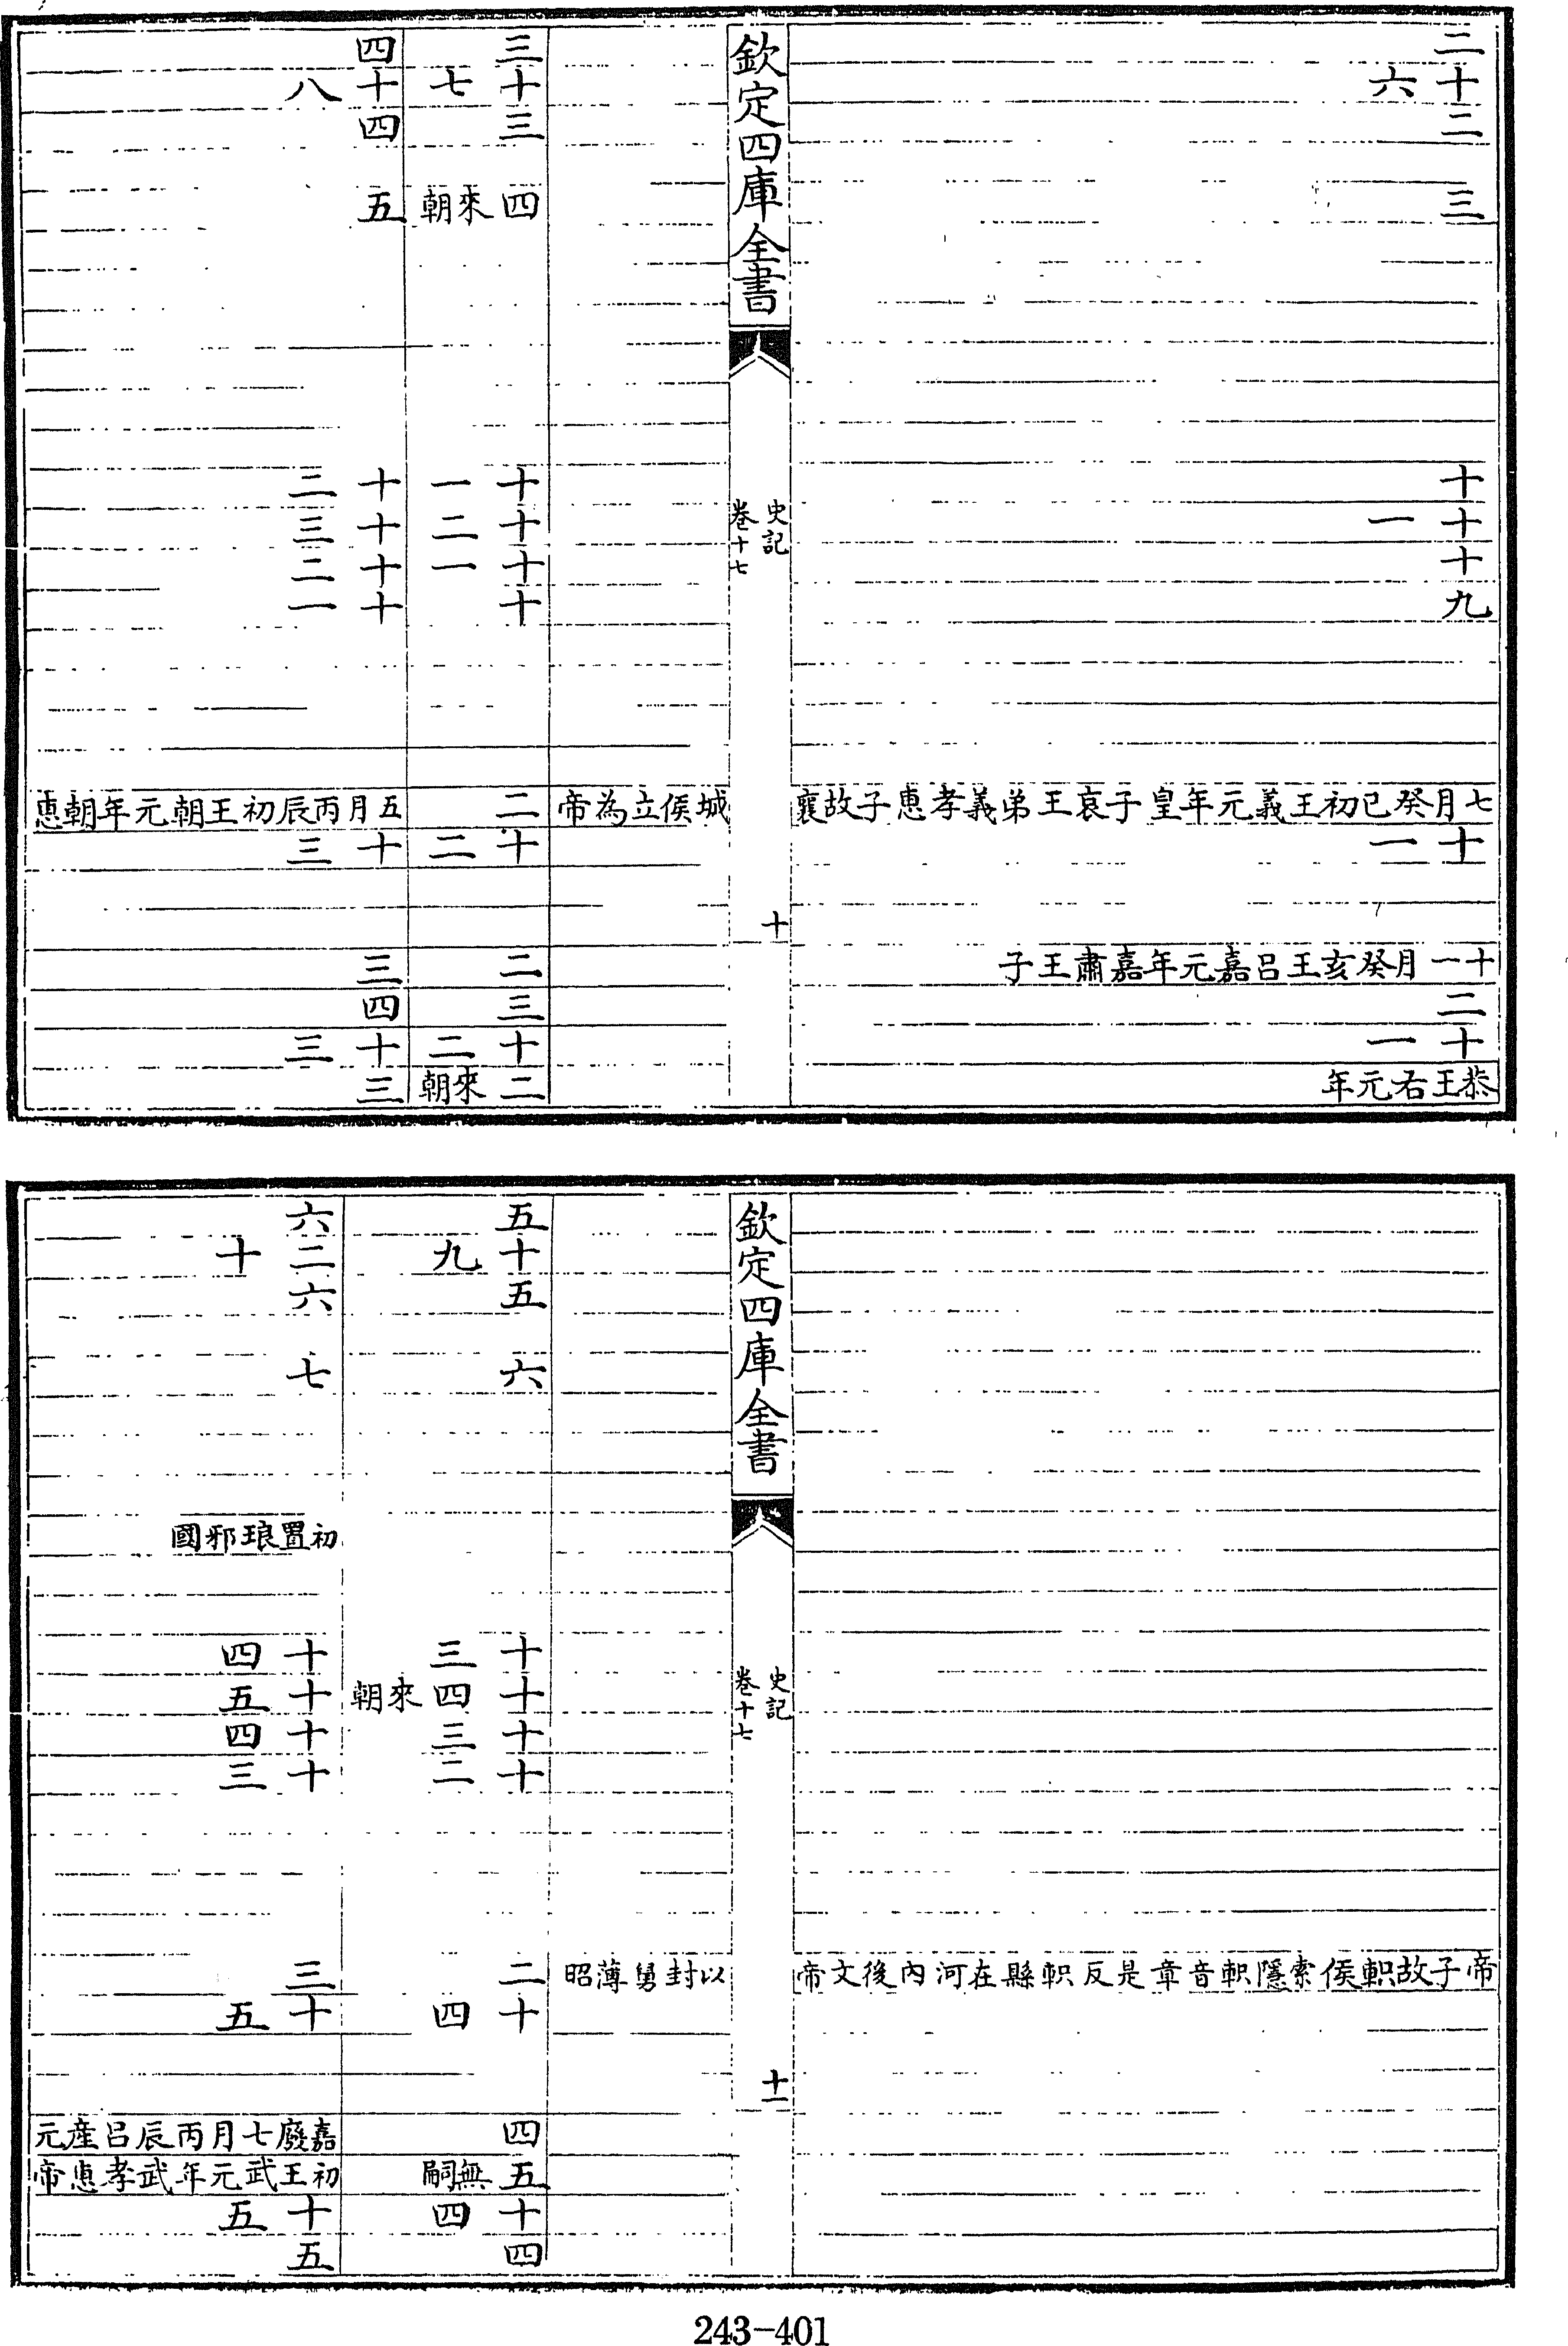 二
十六
二
三
十
十一
十
九
七月癸巳初王義元年皇子哀王弟義孝惠子故襄
十一
十一月癸亥王呂嘉元年嘉肅王子
二
十一
恭王右元年
欽定四庫全書
史記
卷十七
十
城侯立為帝
三
十七
三
四來朝
十一
十二
十一
十
二
十二
二
三
十二
二來朝
四
十八
四
五
十二
十三
十二
十一
五月丙辰初王朝元年朝惠
十三
三
四
十三
三
帝子故軹侯索隱軹音章是反軹縣在河內後文帝
欽定四庫全書
史記
卷十七
十一
以封舅薄昭
五
十九
五
六
十三
十四來朝
十三
十二
二
十四
四
五無嗣
十四
四
六
二十
六
七
初置琅邪國
十四
十五
十四
十三
三
十五
嘉廢七月丙辰呂産元
初王武元年武孝惠帝
十五
五
243-401